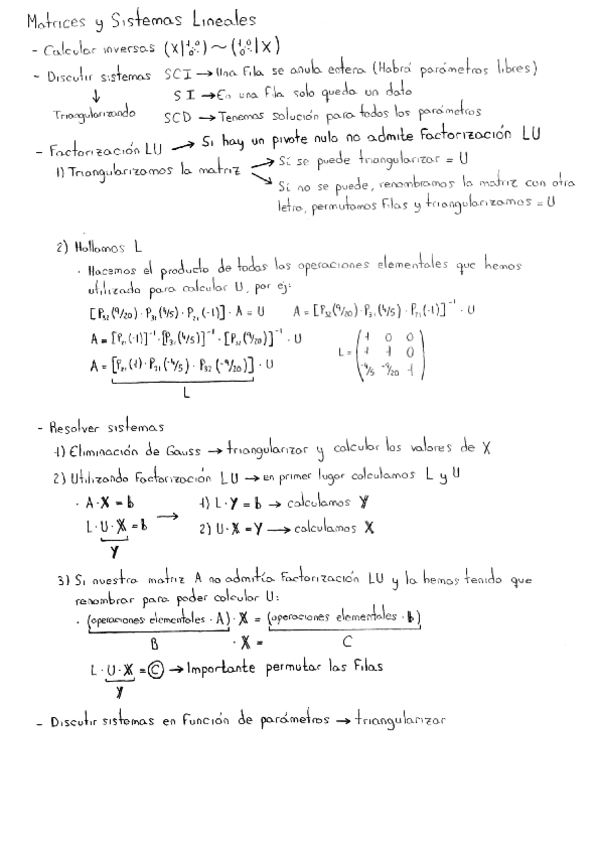 Matrices y Sistemas Lineales
- Calcular inversas (X|1 0 0 1) ~ (1 0 0 1|X)
- Discutir sistemas SCI → Una fila se anula entera (Habrá parámetros libres)
↓ SI → En una fila solo queda un dato
Triangularizando SCD → Tenemos solución para todos los parámetros
- Factorización LU → Si hay un pivote nulo no admite Factorización LU
1) Triangularizamos la matriz → Si se puede triangularizar = U
→ Si no se puede, renombramos la matriz con otra
letra, permutamos filas y triangularizamos = U
2) Hallamos L
· Hacemos el producto de todas las operaciones elementales que hemos
utilizado para calcular U, por ej:
[P₃₂(9/20)·P₃₁(4/5)·P₂₁(-1)]·A = U A = [P₃₂(9/20)·P₃₁(4/5)·P₂₁(-1)]⁻¹·U
A = [P₂₁(-1)]⁻¹·[P₃₁(4/5)]⁻¹·[P₃₂(9/20)]⁻¹·U
A = [P₂₁(1)·P₃₁(-4/5)·P₃₂(-9/20)]·U
L
L = (1 0 0
1 1 0
-4/5 -9/20 1)
- Resolver sistemas
1) Eliminación de Gauss → triangularizar y calcular los valores de X
2) Utilizando Factorización LU → en primer lugar calculamos L y U
· A·X = b → 1) L·Y = b → calculamos Y
L·U·X = b 2) U·X = Y → calculamos X
Y
3) Si nuestra matriz A no admitía Factorización LU y la hemos tenido que
renombrar para poder calcular U:
· (operaciones elementales · A)·X = (operaciones elementales · b)
B · X = C
L·U·X = C → Importante permutar las Filas
Y
- Discutir sistemas en función de parámetros → triangularizar